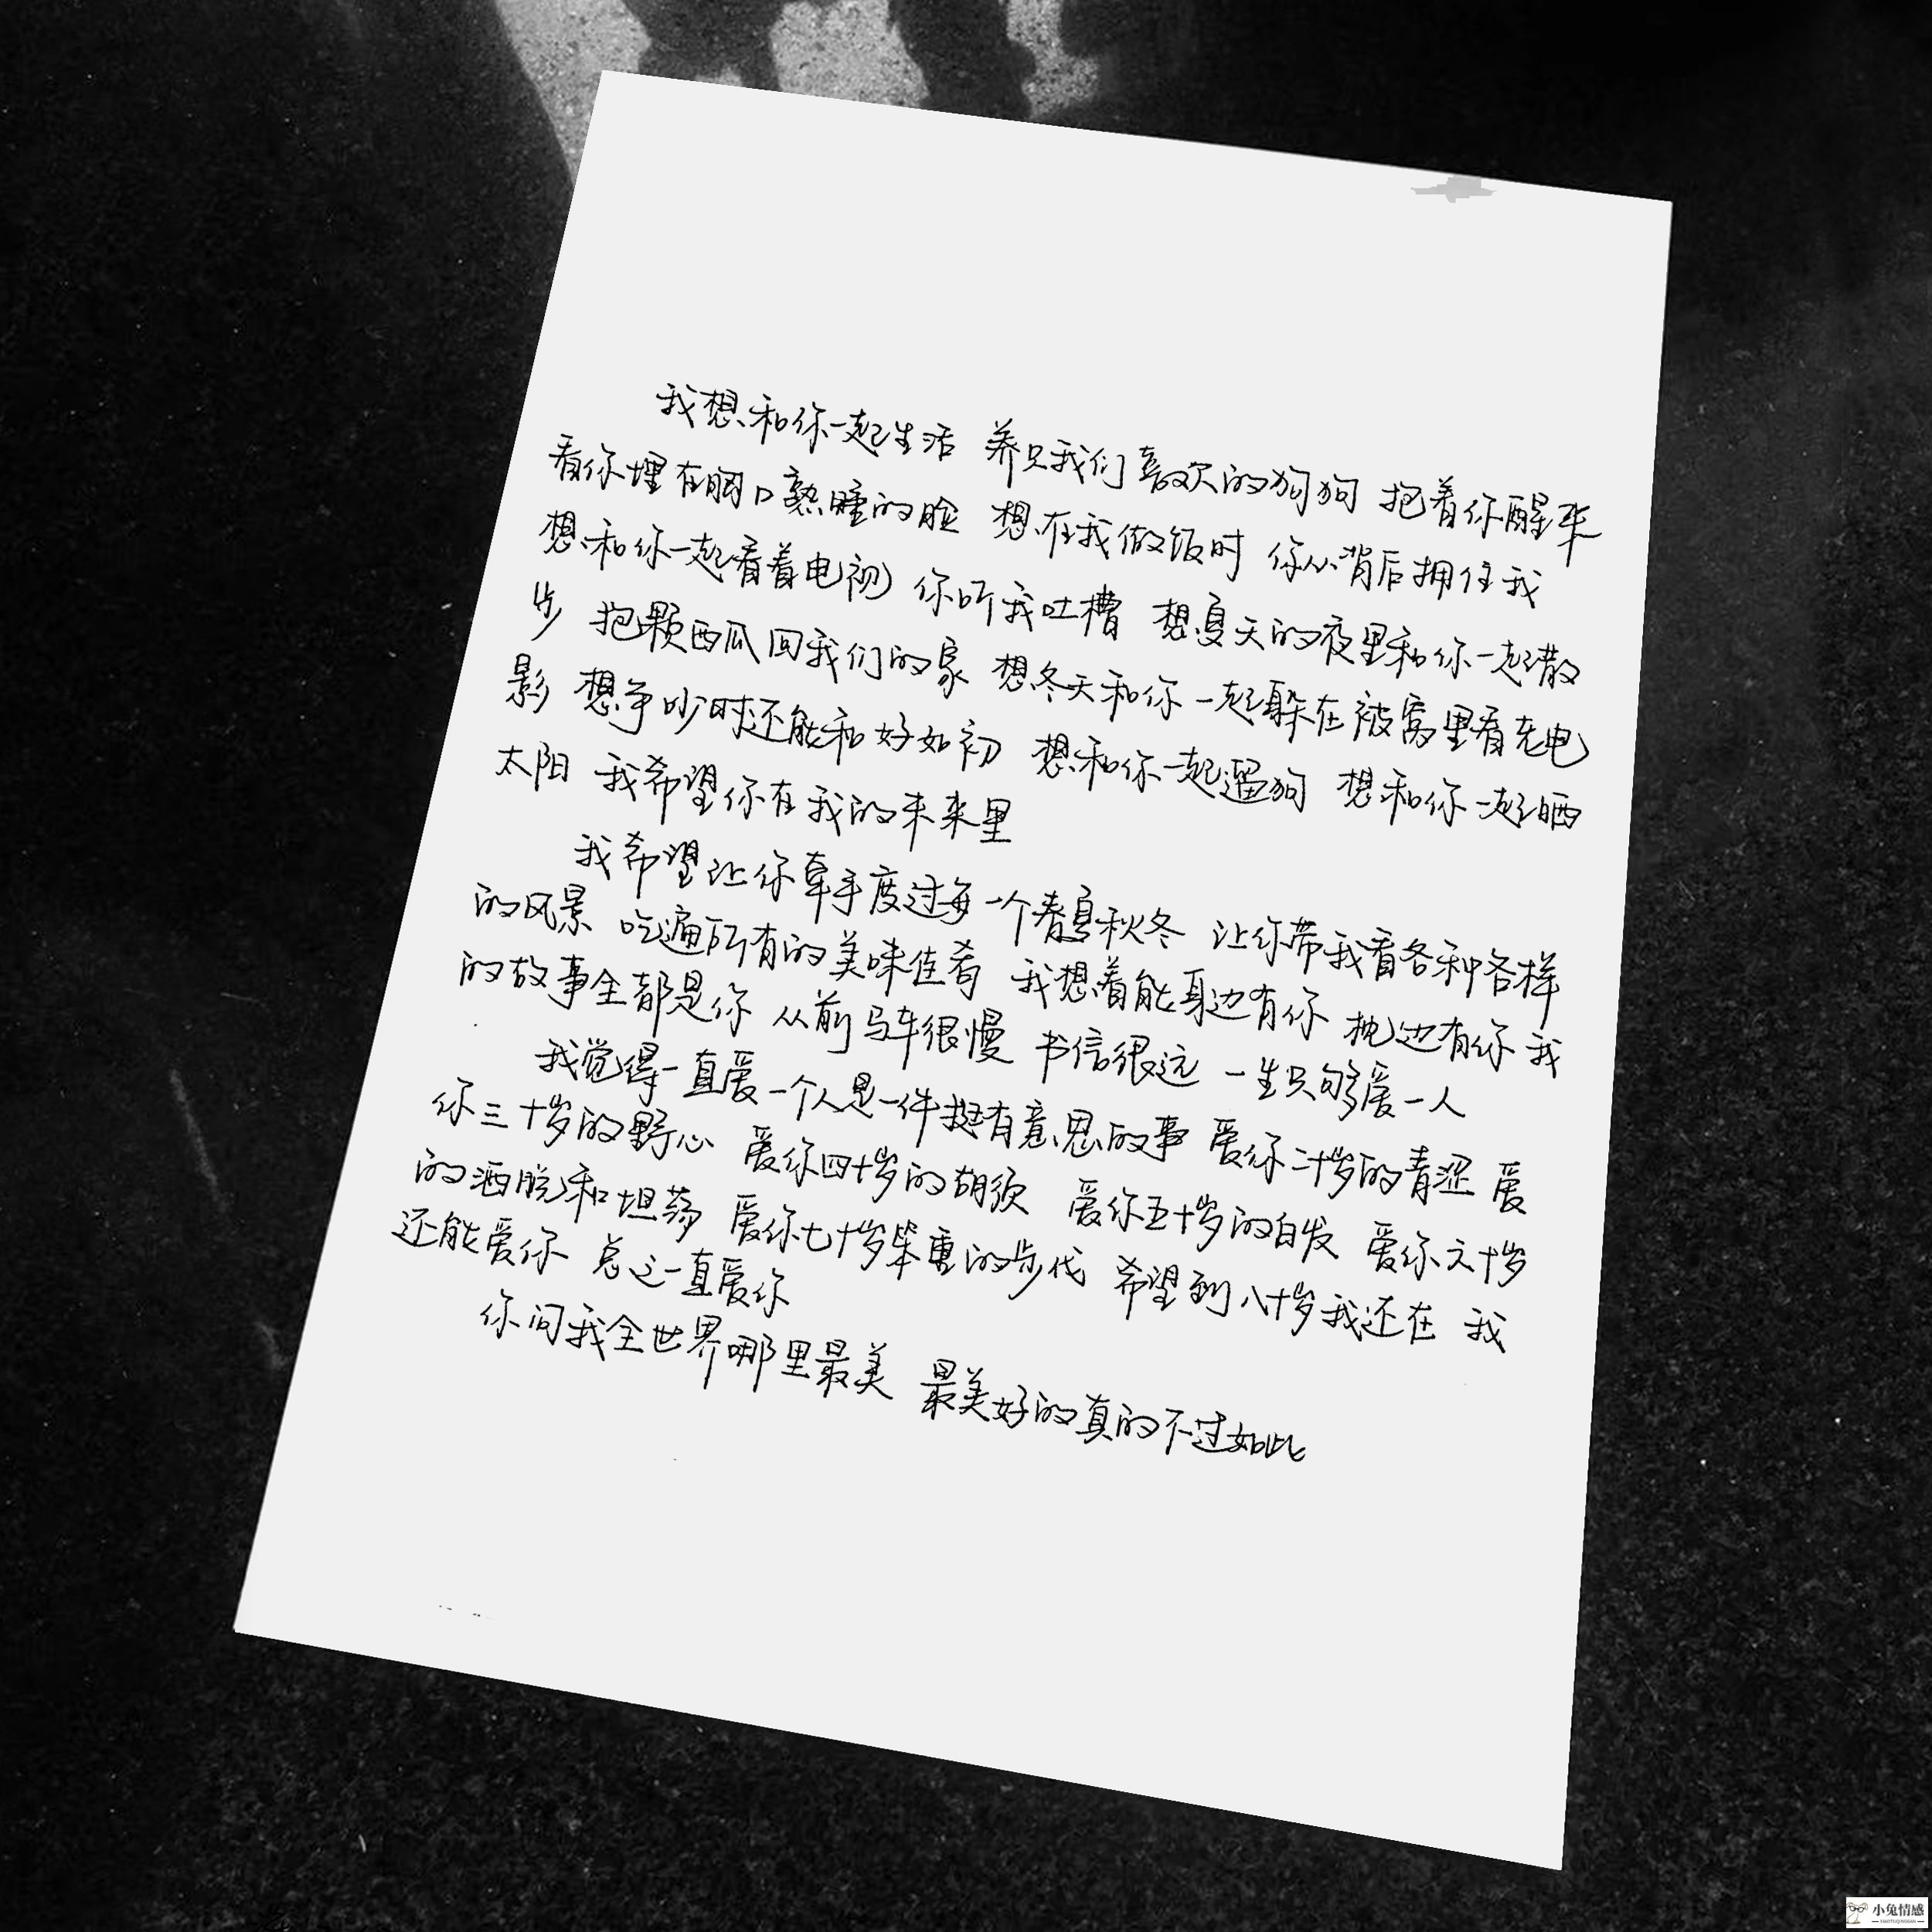 我想和你一起生活 养只我们喜欢的狗狗 抱着你醒来
看你埋在胸口熟睡的脸 想在我做饭时 你从背后拥住我
想和你一起看着电视 你听我吐槽 想夏天的夜里和你一起散
步 抱颗西瓜回我们的家 想冬天和你一起躲在被窝里看充电
影 想争吵时还能和好如初 想和你一起遛狗 想和你一起晒
太阳 我希望你在我的未来里
我希望让你牵手度过每一个春夏秋冬 让你带我看各种各样
的风景 吃遍所有的美味佳肴 我想着能身边有你 枕边有你 我
的故事全都是你 从前马车很慢 书信很远 一生只够爱一人
我觉得一直爱一个人是一件挺有意思的事 爱你二十岁的青涩 爱
你三十岁的野心 爱你四十岁的胡须 爱你五十岁的白发 爱你六十岁
的洒脱和坦荡 爱你七十岁笨重的步伐 希望到八十岁我还在 我
还能爱你 总之一直爱你
你问我全世界哪里最美 最美好的真的不过如此
小兔情感